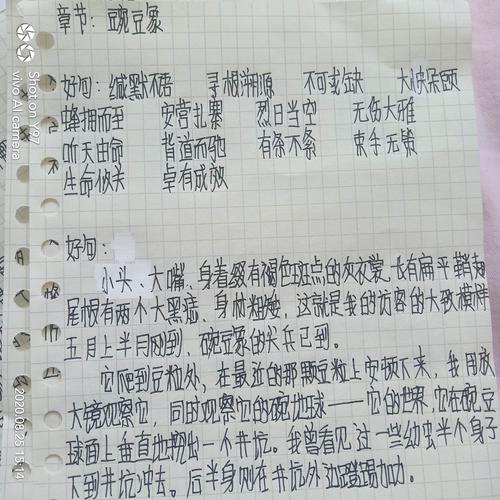 章节：豌豆象
好句：缄默不语 寻根溯源 不可或缺 大快朵颐
蜂拥而至 安营扎寨 烈日当空 无伤大雅
听天由命 背道而驰 有条不紊 束手无策
生命攸关 卓有成效
好句：
小头、大嘴、身着缀有褐色斑点的灰衣裳、长有扁平鞘翅
尾根有两个大黑痣、身材粗矮，这就是我的访客的大致模样
五月上半月刚到，豌豆象的尖兵已到。
它爬到豆粒外，在最近的那颗豆粒上安顿下来，我用放
大镜观察它，同时观察它的豌地球——它的世界，它在豌豆
球面上垂直地挖出一个井坑。我曾看见过一些幼虫半个身子
下到井坑冲去。后半身则在井坑外边蹬踢加劲。
Shot on Y97
vivo AI camera
2020.08.25 15:14